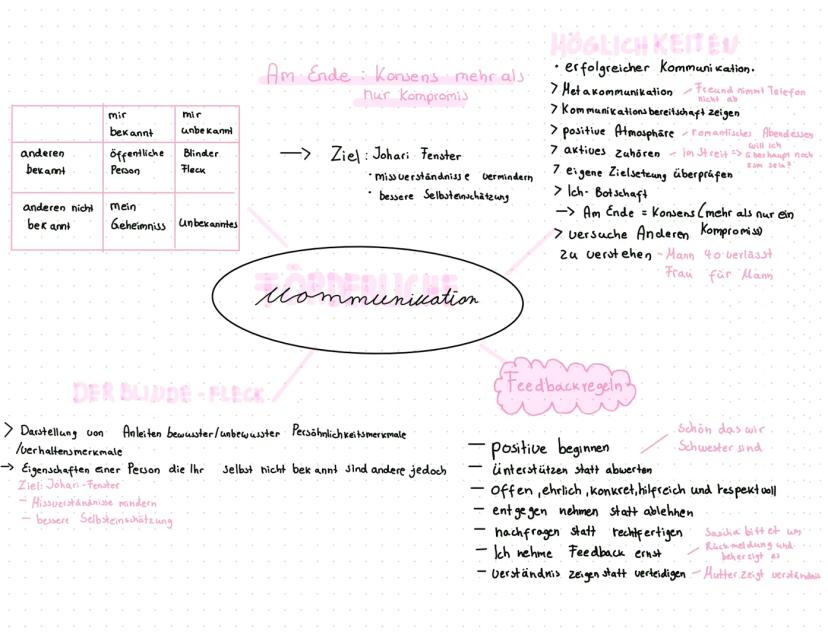 MÖGLICHKEITEN
Am Ende : Konsens mehr als
nur Kompromis
· erfolgreicher Kommunikation.
> Metakommunikation - Freund nimmt Telefon
nicht ab
> Kommunikationsbereitschaft zeigen
> positive Atmosphäre - romantisches Abendessen
> aktives zuhören - im Streit => will ich
überhaupt noch
> eigene Zielsetzung überprüfen
> Ich- Botschaft
-> Am Ende = Konsens (mehr als nur ein
Kompromiss)
> versuche Anderen
zu verstehen - Mann 40 verlässt
Frau für Mann
mir
bekannt
mir
unbekannt
anderen
bekannt
öffentliche
Person
Blinder
Fleck
anderen nicht
bekannt
mein
Geheimniss
Unbekanntes
-> Ziel : Johari Fenster
· missverständnisse vermindern
· bessere Selbsteinschätzung
FÖRDERLICHE
Kommunikation
DER BLINDE - FLECK
> Darstellung von Anleiten bewusster/unbewusster Persöhnlichkeitsmerkmale
/verhaltensmerkmale
-> Eigenschaften einer Person die Ihr selbst nicht bekannt sind andere jedoch
Ziel: Johari-Fenster
- Missverständnisse mindern
- bessere Selbsteinschätzung
Feedbackregeln
- positive beginnen
Schön das wir
Schwester sind
- Unterstützen statt abwerten
- offen, ehrlich, konkret, hilfreich und respektvoll
- entgegen nehmen statt ablehnen
- nachfragen statt rechtfertigen
- Ich nehme Feedback ernst - Sascha bittet um
Rückmeldung und
beherzigt es
- verständnis zeigen statt verteidigen - Mutter zeigt verständnis